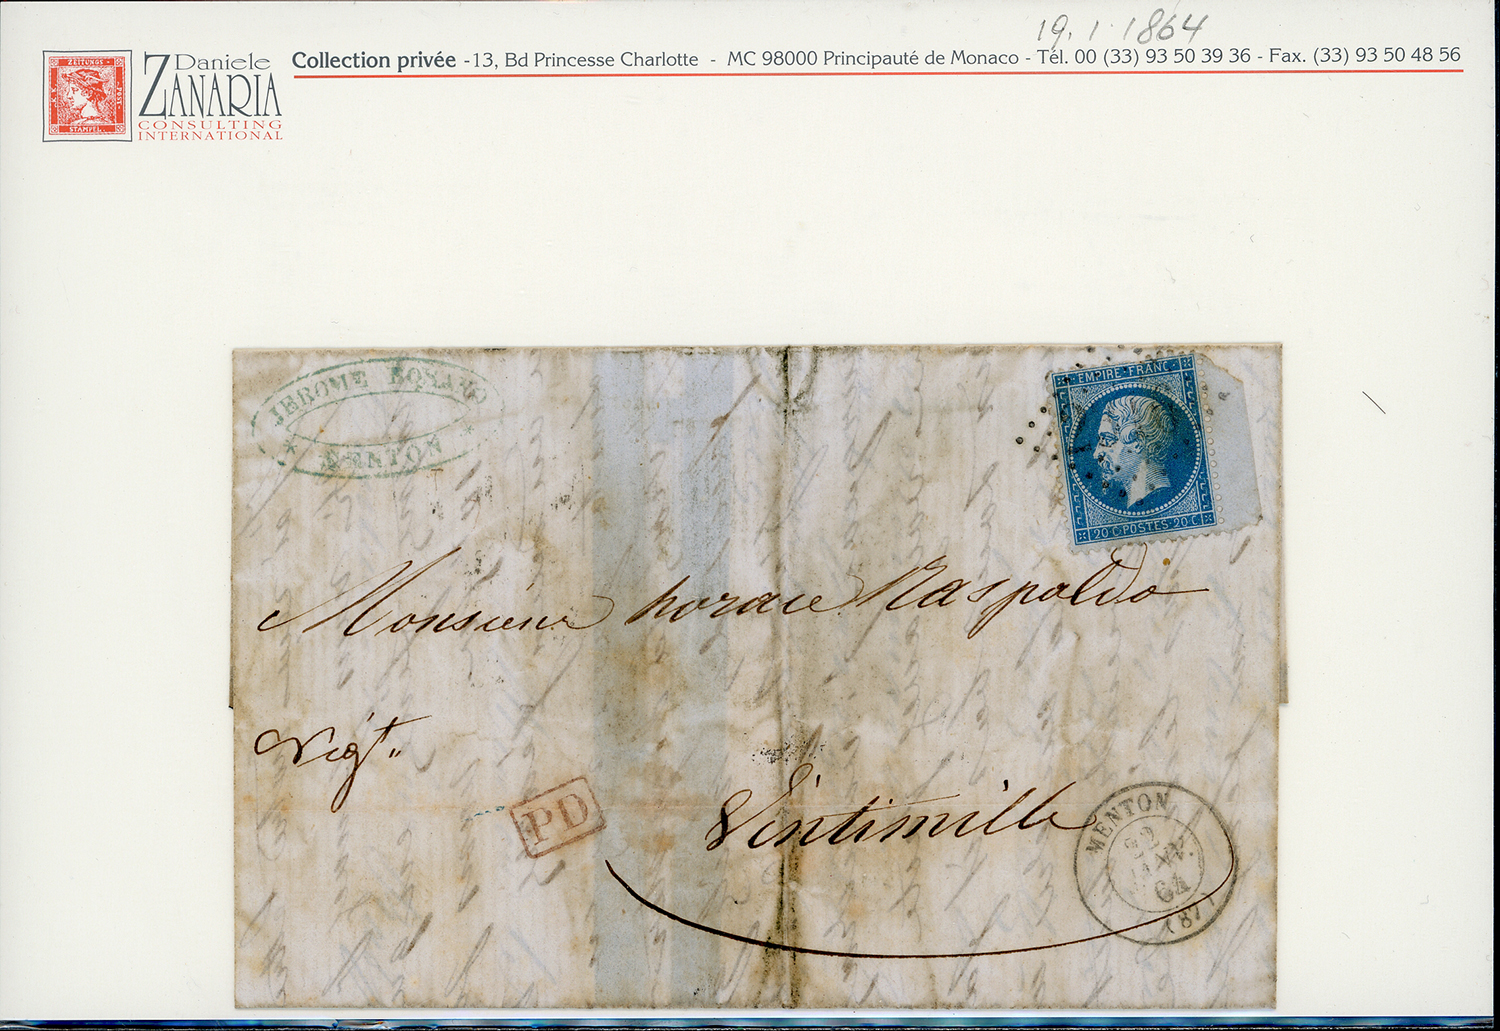 19.1.1864
ZEITUNGS
K.K. POST-
STAMPEL.
Daniele
ZANARIA
CONSULTING
INTERNATIONAL
Collection privée -13, Bd Princesse Charlotte - MC 98000 Principauté de Monaco - Tél. 00 (33) 93 50 39 36 - Fax. (33) 93 50 48 56
JEROME
MENTON
EMPIRE·FRANC·
20·C·POSTES·20·C·
Monsieur horace Raspaldo
Négt
PD
Vintimille
MENTON
22
JANV.
64
(87)